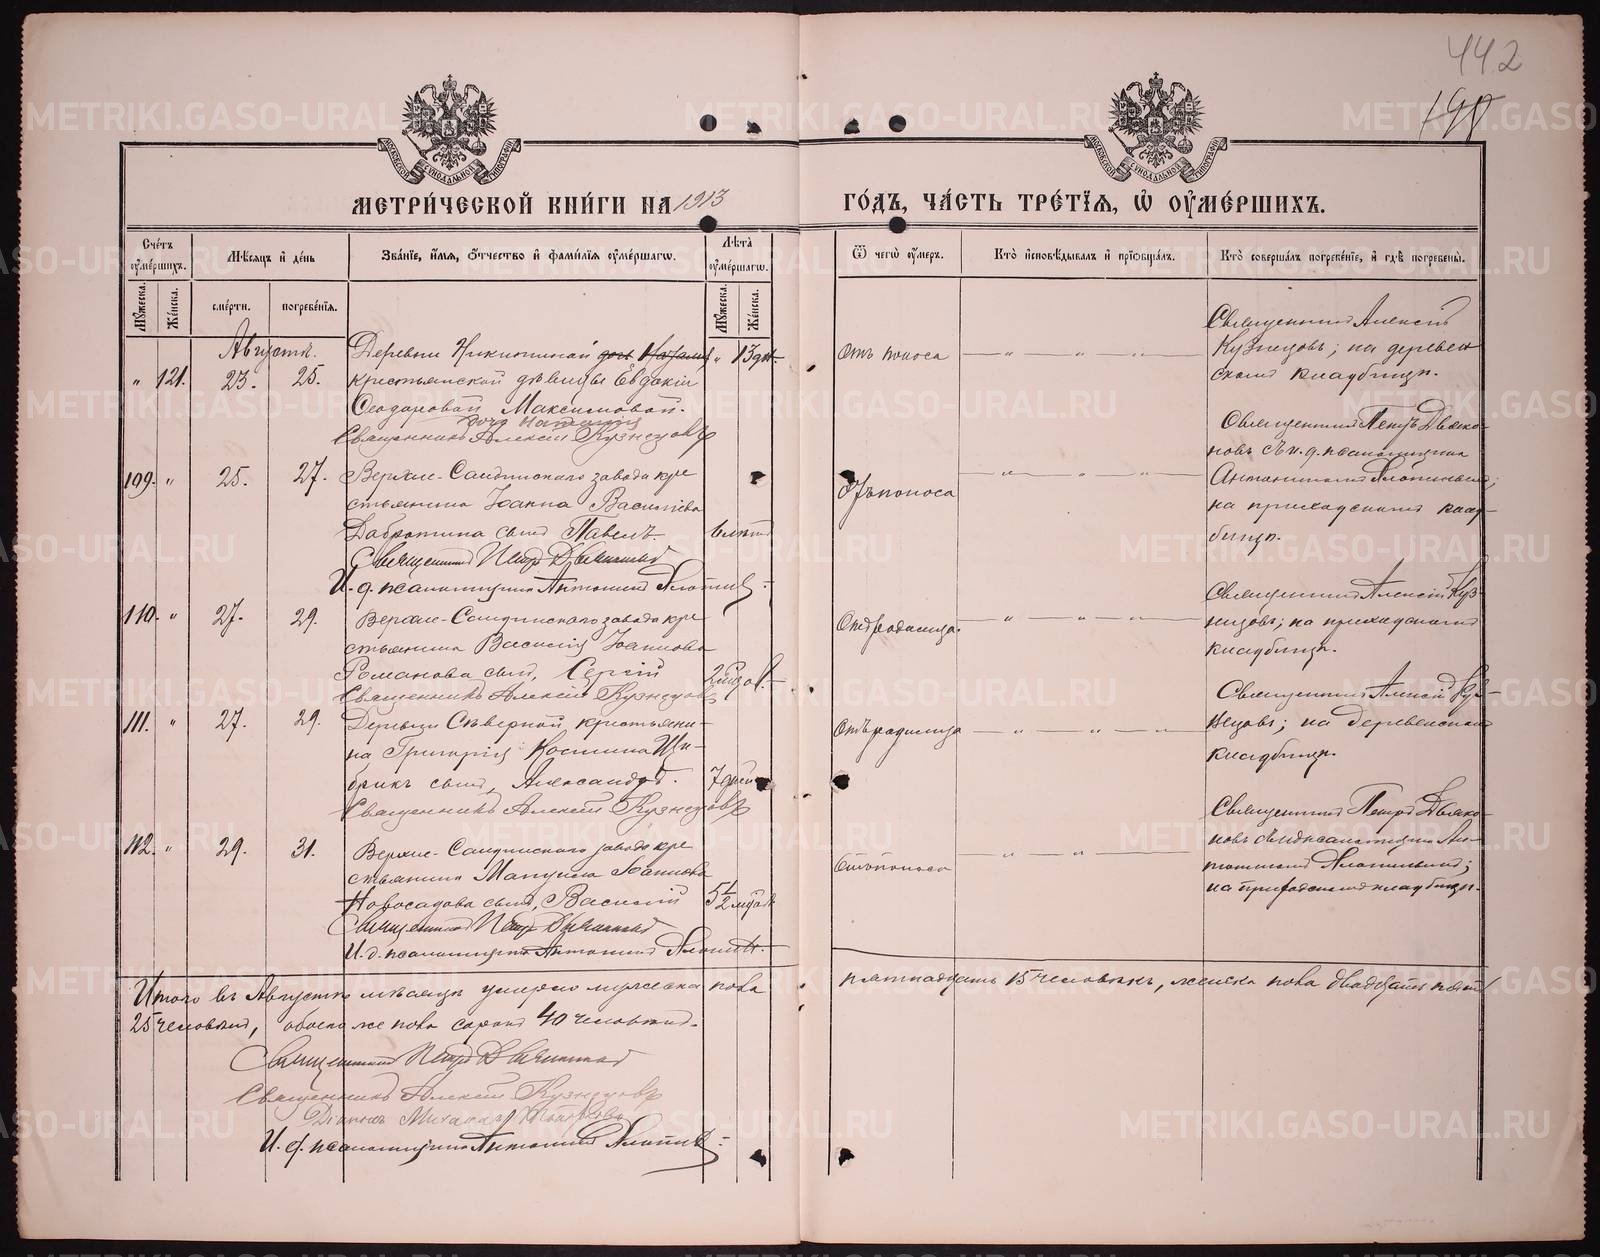 442
190
МЕТРИ́ЧЕСКОЙ КНИ́ГИ НА 1913 ГО́ДЪ, ЧА́СТЬ ТРЕ́ТЇѦ, Ѡ҆ ОУ҆МЕ́РШИХЪ.
Сче́тъ оу҆ме́ршихъ.
Мꙋжеска.
Же́нска.
Мѣ́сѧцъ и҆ де́нь
сме́рти.
погребе́нїѧ.
Зва́нїе, и҆́мѧ, ѻ҆́тчество и҆ фами́лїѧ оу҆ме́ршагѡ.
Лѣ́та оу҆ме́ршагѡ.
Мꙋжеска.
Же́нска.
Ѿ чегѡ̀ оу҆́меръ.
Кто̀ и҆сповѣ́дывалъ и҆ прїѻбща́лъ.
Кто̀ соверша́лъ погребе́нїе, и҆ гдѣ̀ погребены̀.
Августъ.
" 121. 23. 25.
Деревни Никитиной дочь
крестьянской дѣвицы Евдокіи
Ѳеодоровой Максимовой.
дочь Наталія
Священникъ Алексій Кузнецовъ
13 дн.
Отъ поноса
Священникъ Алексій
Кузнецовъ; на деревен
скомъ кладбищѣ.
109. " 25. 27.
Верхне-Салдинскаго завода кре
стьянина Іоанна Василіева
сынъ Павелъ
Священникъ Петръ Дьяконовъ
И. д. псаломщика Антоний
1 лѣтъ
Отъ поноса
Священникъ Петръ Дьяко-
новъ съ и. д. псаломщика
на приходскомъ клад-
бищѣ.
110. " 27. 29.
Верхне-Салдинскаго завода кре
стьянина Василія Іоаннова
Романова сынъ, Сергій
Священникъ Алексій Кузнецовъ
2 мѣсяц.
Отъ родимца.
Священникъ Алексій Куз-
нецовъ; на приходскомъ
кладбищѣ.
111. " 27. 29.
Деревни Сѣверной, крестьяни-
на Григорія Космина
сынъ, Александръ.
Священникъ Алексій Кузнецовъ
7 дней
Отъ родимца
Священникъ Алексій Куз-
нецовъ; на деревенскомъ
кладбищѣ.
112. " 29. 31.
Верхне-Салдинскаго завода кре
стьянина Мануила Іоаннова
Новосадова сынъ, Василій
Священникъ Петръ Дьяконовъ
И. д. псаломщика Антоний
5 1/2 мѣсяц.
Отъ поноса
Священникъ Петръ Дьяко-
новъ съ и. д. псаломщика Ан-
на приходскомъ кладбищѣ.
Итого въ Августѣ мѣсяцѣ умерло мужеска пола пятнадцать 15 человѣкъ, женска пола двадцать пять
25 человѣкъ, обоего же пола сорокъ 40 человѣкъ.
Священникъ Петръ Дьяконовъ
Священникъ Алексій Кузнецовъ
Діаконъ Михаилъ
И. д. псаломщика Антоний
METRIKI.GASO-URAL.RU